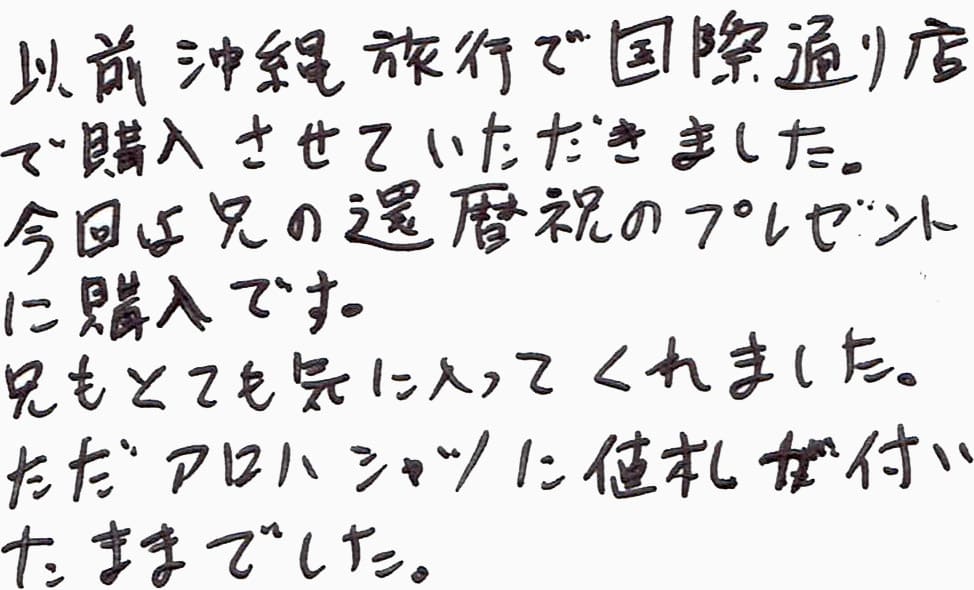 以前沖縄旅行で国際通り店
で購入させていただきました。
今回は兄の還暦祝のプレゼント
に購入です。
兄もとても気に入ってくれました。
ただアロハシャツに値札が付い
たままでした。